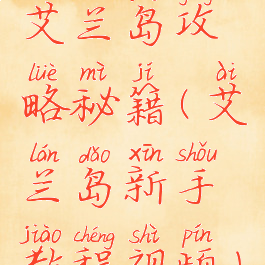 艾兰岛攻
lüè mì jí ài
略秘籍(艾
lán dǎo xīn shǒu
兰岛新手
jiào chéng shì pín
教程视频)